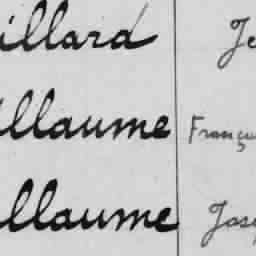 illard Je
illaume Françu
illaume Jose